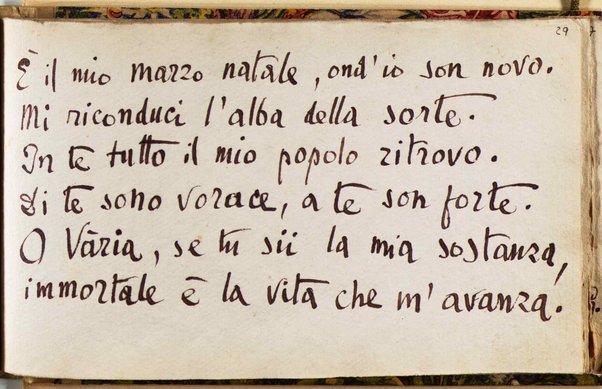 29
È il mio marzo natale, ond'io son novo.
Mi riconduci l'alba della sorte.
In te tutto il mio popolo ritrovo.
Di te sono vorace, a te son forte.
O Vària, se tu sii la mia sostanza,
immortale è la vita che m'avanza.